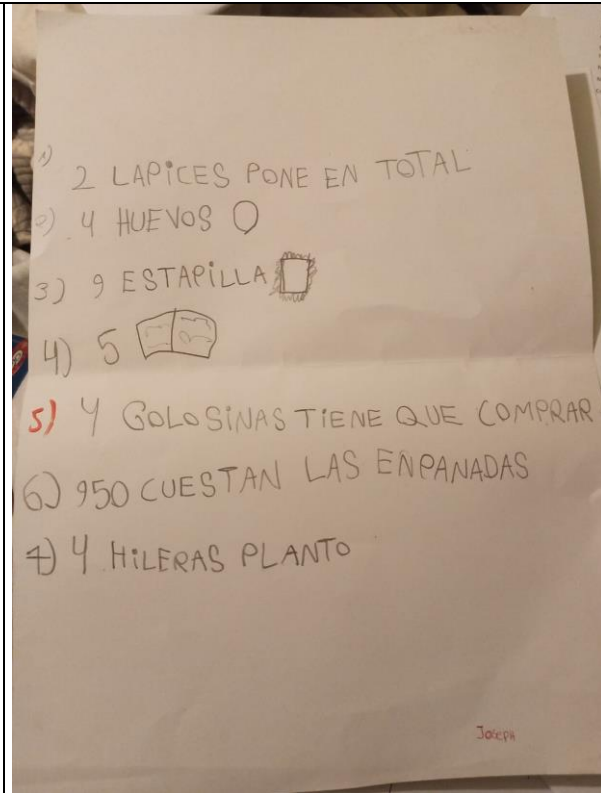 1)
2 LAPICES PONE EN TOTAL
2) 4 HUEVOS
3) 9 ESTAPILLA
4) 5
5) 4 GOLOSINAS TIENE QUE COMPRAR
6) 950 CUESTAN LAS ENPANADAS
7) 4 HILERAS PLANTO
JOSEPH